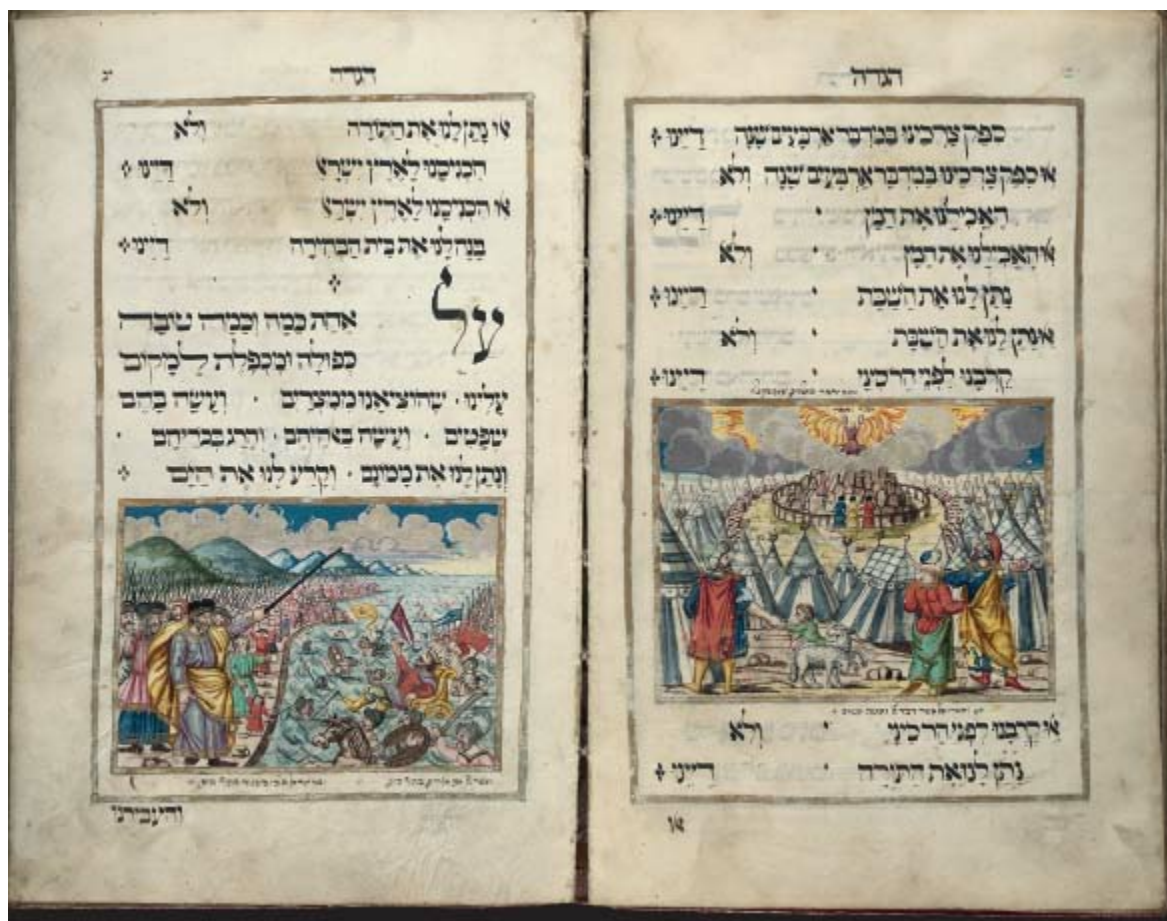 הגדה
סִפֵּק צָרְכֵינוּ בַּמִּדְבָּר אַרְבָּעִים שָׁנָה דַּיֵּינוּ
אִלּוּ סִפֵּק צָרְכֵינוּ בַּמִּדְבָּר אַרְבָּעִים שָׁנָה וְלֹא
הֶאֱכִילָנוּ אֶת הַמָּן דַּיֵּינוּ
אִלּוּ הֶאֱכִילָנוּ אֶת הַמָּן וְלֹא
נָתַן לָנוּ אֶת הַשַּׁבָּת דַּיֵּינוּ
אִלּוּ נָתַן לָנוּ אֶת הַשַּׁבָּת וְלֹא
קֵרְבָנוּ לִפְנֵי הַר סִינַי דַּיֵּינוּ
אִלּוּ קֵרְבָנוּ לִפְנֵי הַר סִינַי וְלֹא
נָתַן לָנוּ אֶת הַתּוֹרָה דַּיֵּינוּ
אלו
הגדה
אִלּוּ נָתַן לָנוּ אֶת הַתּוֹרָה וְלֹא
הִכְנִיסָנוּ לְאֶרֶץ יִשְׂרָאֵל דַּיֵּינוּ
אִלּוּ הִכְנִיסָנוּ לְאֶרֶץ יִשְׂרָאֵל וְלֹא
בָּנָה לָנוּ אֶת בֵּית הַבְּחִירָה דַּיֵּינוּ
עַל אַחַת כַּמָּה וְכַמָּה טוֹבָה
כְּפוּלָה וּמְכֻפֶּלֶת לַמָּקוֹם
עָלֵינוּ · שֶׁהוֹצִיאָנוּ מִמִּצְרַיִם · וְעָשָׂה בָהֶם
שְׁפָטִים · וְעָשָׂה בֵאלֹהֵיהֶם · וְהָרַג בְּכוֹרֵיהֶם ·
וְנָתַן לָנוּ אֶת מָמוֹנָם · וְקָרַע לָנוּ אֶת הַיָּם
והעבירנו